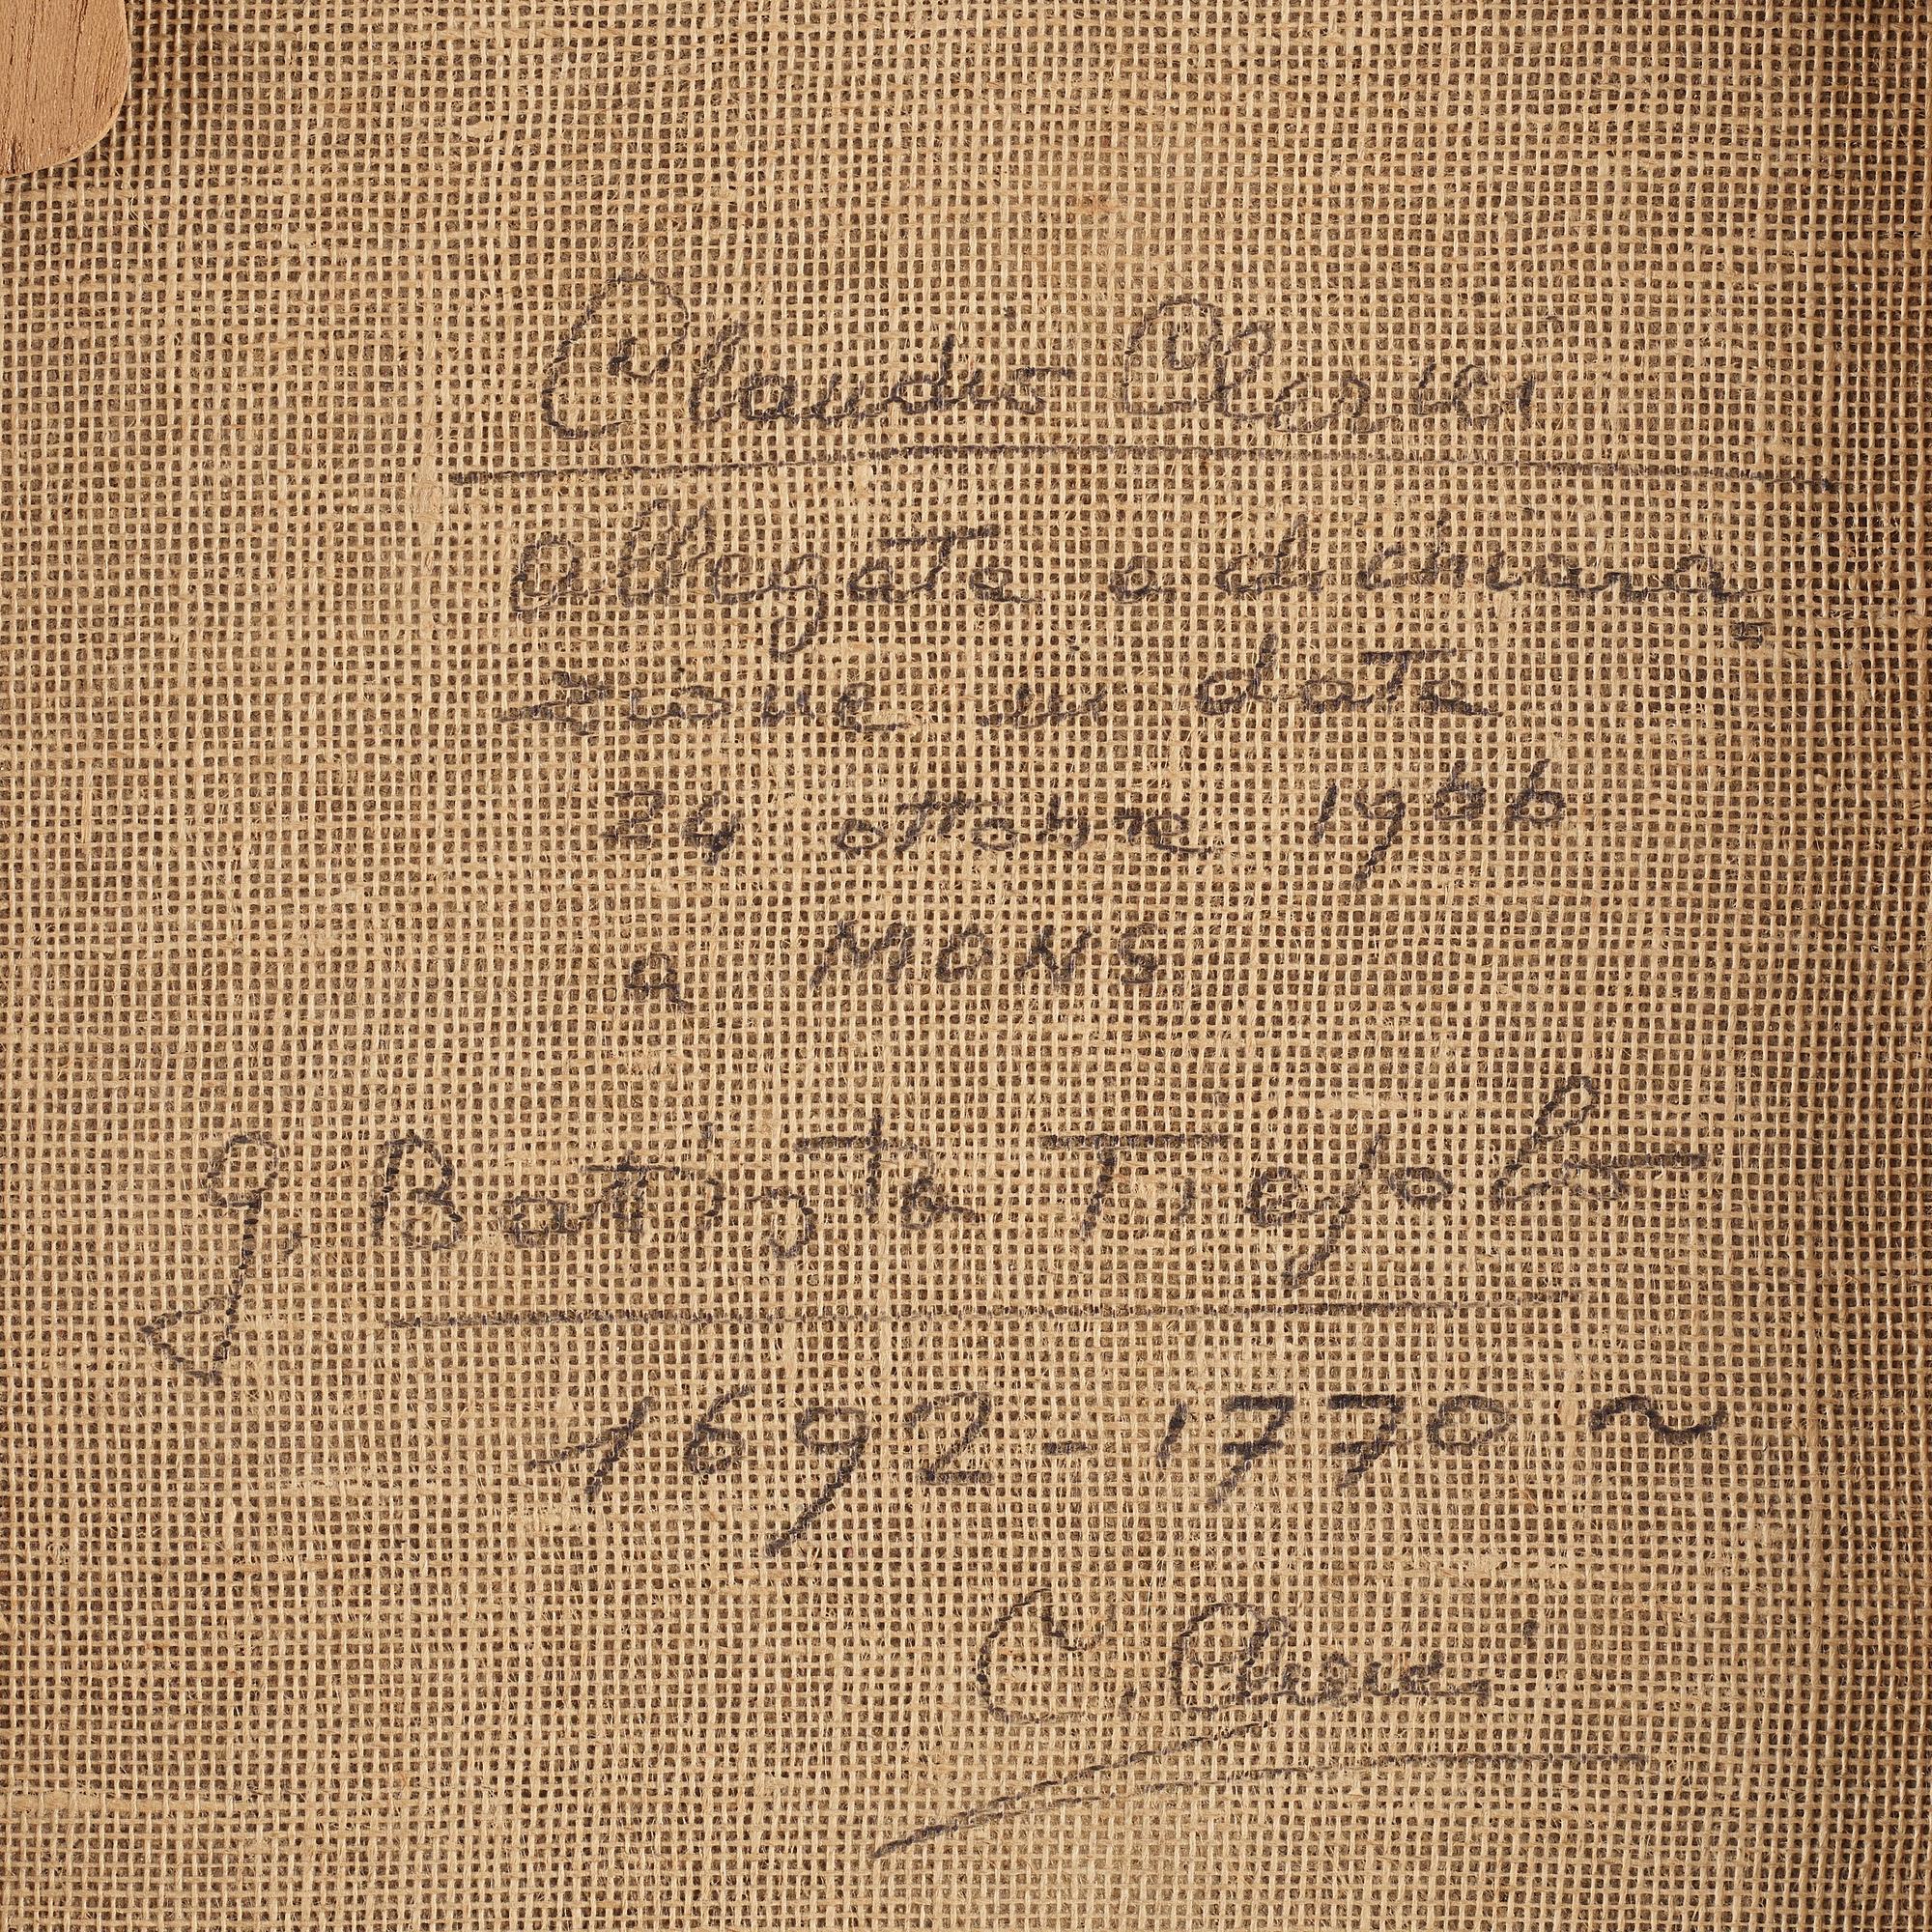 Claudio
allegato a dichiara
zione in data
24 ottobre 1966
a MONS
G Battista Tiepolo
1692-1770 ~
C.